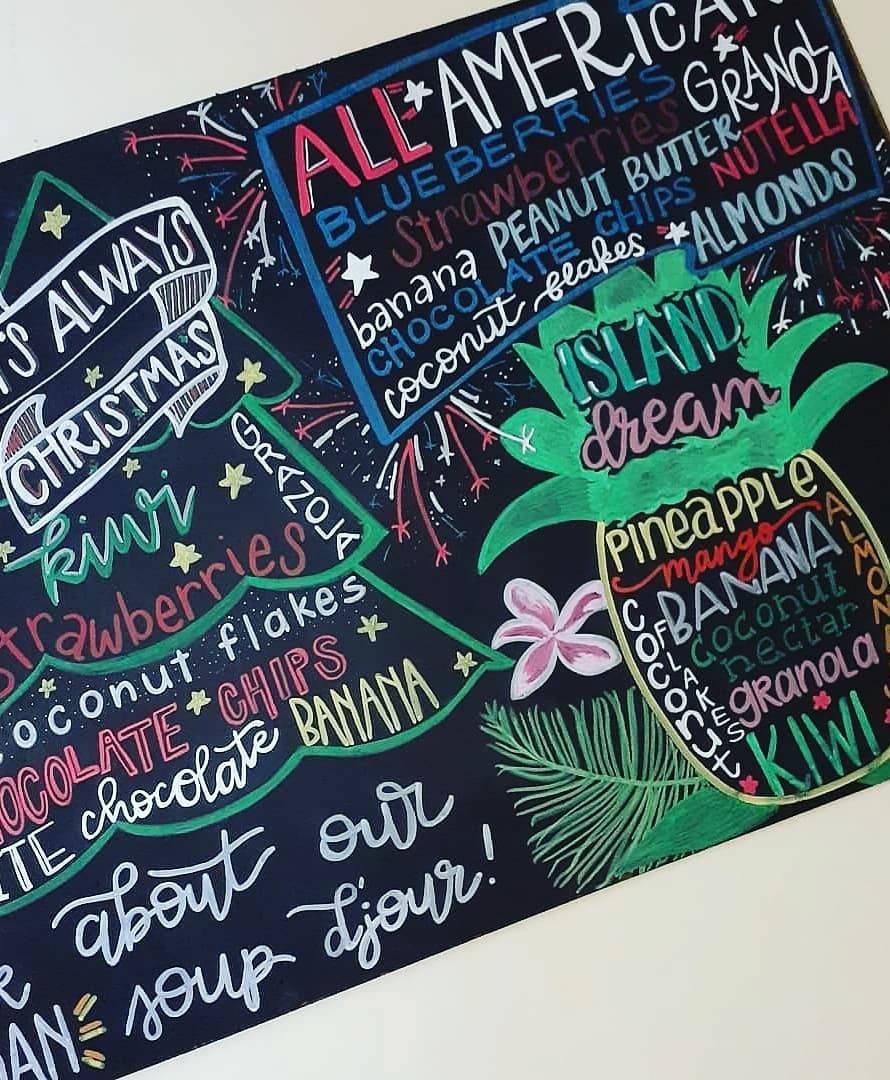 ALL AMERICAN
BLUEBERRIES GRANOLA
Strawberries
banana PEANUT BUTTER NUTELLA
CHOCOLATE CHIPS
coconut flakes ALMONDS
ALWAYS
CHRISTMAS
kiwi
GRANOLA
strawberries
coconut flakes
CHIPS
chocolate BANANA
ISLAND
dream
PINEAPPLE
mango
BANANA
ALMOND
coconut
nectar
COCONUT
FLAKES
granola
KIWI
about our
soup d'jour!